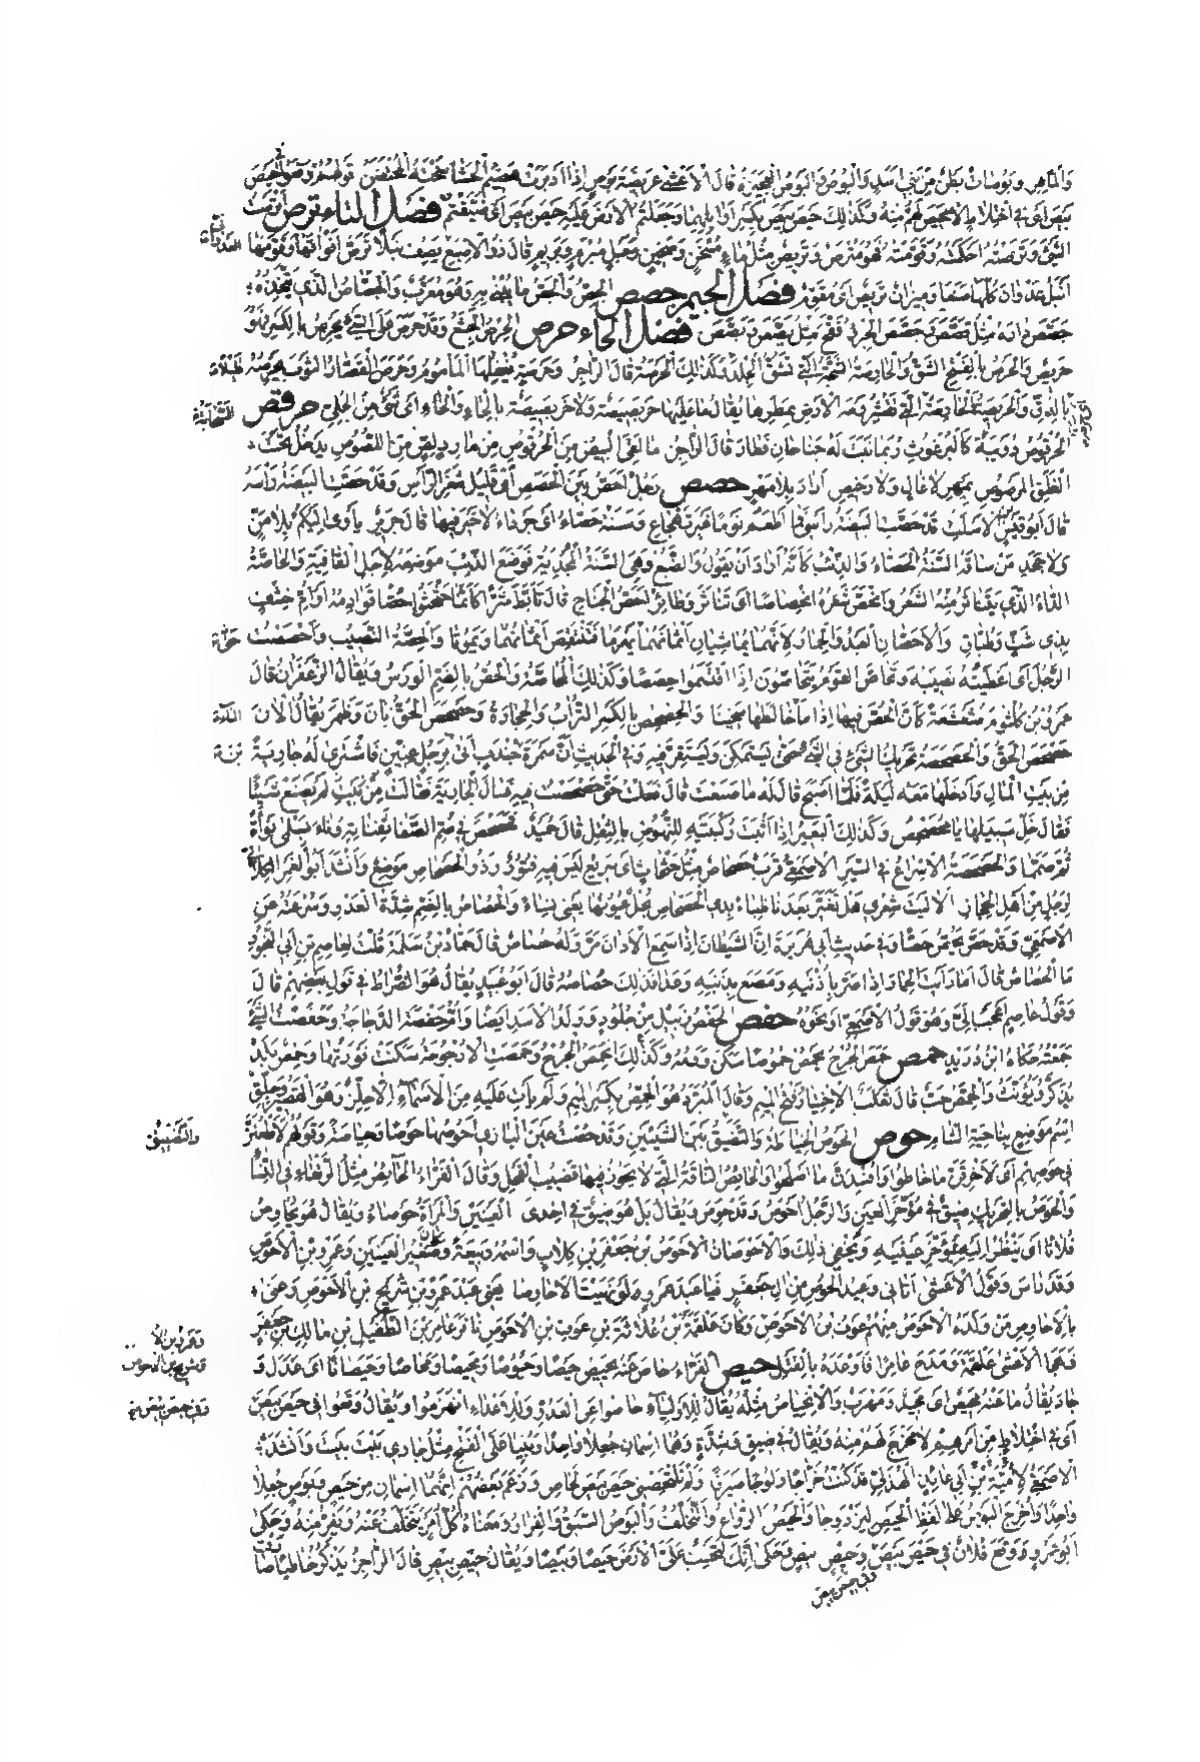 والماهر وبوصان بطن من بني اسد والبوص والبوص العجيزة قال الاعشى عريضة بوص اذا ادبرت هضيم الحشا شختة المحتضن قولهم وقعوا في حيص
بيص اى في اختلاط لا محيص لهم منه وكذلك حيص بيص بكسر اوايلهما وجعلتم الارض عليه حيص بيص اى ضيقتم فصل التاء ترص اترصت
الشئ وترصته احكمته وقومته فهو مترص وتريص مثل ماء مسخن وسخين وحبل مبرم وبريم قال ذو الاصبع يصف نبلا ترص افواقها وقومها
انبل عدوان كلها صنعا وميزان تريص اى مقوم فصل الجيم جصص الجص والجص ما يبنى به وهو معرب والجصاص الذى يتخذه
جصص داره مثل قصص وجصص الجرو فتح مثل بصص ويصص فصل الحاء حرص الحرص الجشع وقد حرص على الشئ يحرص بالكسر فهو
حريص والحرص بالفتح الشق والحارصة الشجة التى تشق الجلد وكذلك الحرصة قال الراجز وحرصة يغفلها المأموم وحرص القصار الثوب يحرصه
بالدق والحريصة الحارصة التى تقشر وجه الارض بمطرها يقال ما عليها حربصيصة ولا خربصيصة بالحاء والخاء اى شئ من الحلى حرقص
الحرقوص دويبة كالبرغوث وربما نبت له جناحان فطار قال الراجز ما لقى البيض من الحرقوص من مارد لص من اللصوص يدخل تحت
الغلق المرصوص بمهر لا غال ولا رخيص اراد بلا مهر حصص رجل احص بين الحصص اى قليل شعر الرأس وقد حصت البيضة رأسه
قال ابو قيس بن الاسلت قد حصت البيضة رأسى فما اطعم نوما غير تهجاع وسنة حصاء اى جرداء لا خير فيها قال جرير يأوى اليكم بلا من
ولا جحد من ساقه السنة الحصاء والذيب كانه اراد ان يقول والضبع وهى السنة المجدبة فوضع الذيب موضعه لاجل القافية والحاصة
الداء الذى يتناثر منه الشعر وانحص شعره انحصاصا اى تناثر وطائر احص الجناح قال تأبط شرا كانما حثحثوا حصا قوادمه او ام خشف
بذى شث وطباق والاحصان العبد والحمار لانهما يماشيان اثمانهما حتى يهرما فتنتقص اثمانهما ويموتا والحصة النصيب واحصصت
الرجل اى اعطيته نصيبه وتحاص القوم يتحاصون اذا اقتسموا حصصا وكذلك المحاصة والحص بالضم الورس ويقال الزعفران قال
عمرو بن كلثوم مشعشعة كان الحص فيها اذا ما الماء خالطها سخينا والحصحص بالكسر التراب والحجارة وحصحص الحق بان وظهر يقال الان
حصحص الحق والحصحصة تحريك الشئ في الشئ حتى يستمكن ويستقر فيه وفي الحديث ان سمرة بن جندب اتى برجل عنين فاشترى له جارية
من بيت المال وادخلها معه ليلة فلما اصبح قال له ما صنعت قال فعلت حتى حصحصت فيه فسال الجارية فقالت
فقال خل سبيلها يا محصحص وكذلك البعير اذا اثبت ركبتيه للنهوض بالثقل قال حميد فحصحص في صم الصفا ثفناته وناء بسلمى نوأة
ثم صمما والحصحصة الاسراع في السير الاصمعى قرب حصحاص مثل حثحاث اى سريع ليس فيه فتور وذو الحصحاص موضع وانشد ابو الغمر الكلابى
لرجل من اهل الحجاز الا ليت شعرى هل تغير بعدنا ظباء بذى الحصحاص نجل عيونها يعنى نساء والحصاص بالضم شدة العدو وسرعته عن
الاصمعى وقد حص يحص حصا وفي حديث ابى هريرة ان الشيطان اذا سمع الاذان مر وله حصاص قال حماد بن سلمة قلت لعاصم بن ابى النجود
ما الحصاص قال اما رأيت الحمار اذا صر باذنيه ومصع بذنبه وعدا فذلك حصاصه قال ابو عبيد يقال هو الضراط في قول بعضهم قال
وقول عاصم اعجب الى وهو قول الاصمعى او نحوه حفص الحفص زبيل من جلود وولد الاسد ايضا وام حفصة الدجاجة وحفصت الشئ
جمعته حكاه ابن دريد حمص حمص الجرح يحمص حموصا سكن ورمه وكذلك انحمص الجرح وحمصت الارجوحة سكنت فورتها وحمص بلد
يذكر ويؤنث والحمص حب قال ثعلب الاختيار فتح الميم وقال المبرد هو الحمص بكسر الميم ولم يأت عليه من الاسماء الا حلز وهو القصير وجلق
اسم موضع بناحية الشام حوص الحوص الخياطة والتضييق بين الشيئين وقد حصت عين البازى احوصها حوصا وحياصة وقولهم لاطعنن
في حوصهم اى لاخرقن ما خاطوا وافسدن ما اصلحوا والحائص الناقة التى لا يجوز فيها قضيب الفحل وقال الفراء الحائص مثل الرتقاء في النساء
والحوص بالتحريك ضيق في مؤخر العين والرجل احوص وقد حوص ويقال بل هو ضيق في احدى العينين والمرأة حوصاء ويقال هو يحاوص
فلانا اى ينظر اليه بمؤخر عينيه ويخفى ذلك والاحوصان الاحوص بن جعفر بن كلاب واسمه ربيعة وكان صغير العينين وعمرو بن الاحوص
وقد راس وقول الاعشى اتانى وعيد الحوص من ال جعفر فيا عبد عمرو لو نهيت الاحاوصا يعنى عبد عمرو بن شريح بن الاحوص وعنى
بالاحاوص من ولده الاحوص منهم عوف بن الاحوص وكان علقمة بن علاثة بن عوف بن الاحوص نافر عامر بن الطفيل بن مالك بن جعفر
فهجا الاعشى علقمة ومدح عامرا فاوعده بالقتل حيص الفراء حاص عنه يحيص حيصا وحيوصا ومحيصا ومحاصا وحيصانا اى عدل و
حاد يقال ما عنه محيص اى محيد ومهرب والانحياص مثله يقال للاولياء حاصوا عن العدو وللاعداء انهزموا ويقال وقعوا في حيص بيص
اى في اختلاط من امرهم لا مخرج لهم منه ويقال في ضيق وشدة وهما اسمان جعلا واحدا وبنيا على الفتح مثل جارى بيت بيت وانشد
الاصمعى لامية بن ابى عائذ الهذلى قد كنت خراجا ولوجا صيرفا لم تلتحصنى حيص بيص لحاص وزعم بعضهم انهما اسمان من حيص وبوص جعلا
واحدا واخرج البوص على لفظ الحيص ليزدوجا والحيص الرواغ والتخلف والبوص السبق والفرار ومعناه كل امر يتخلف عنه ويفر منه وحكى
ابو عمرو وقع فلان في حيص بيص وحيص بيص وحكى انك لتحسب على الارض حيصا بيصا ويقال حيص بيص قال الراجز
والتضييق